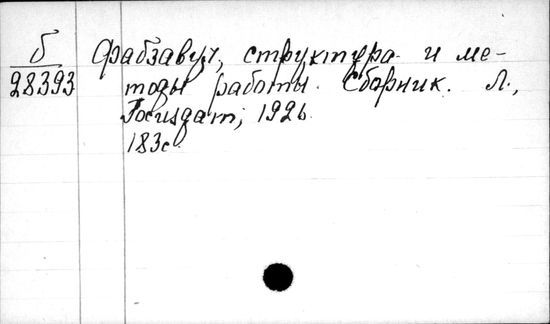 б Фабзавуч, структура и ме-
28393 тоды работы. Сборник. Л.,
Госиздат, 1926.
183с.